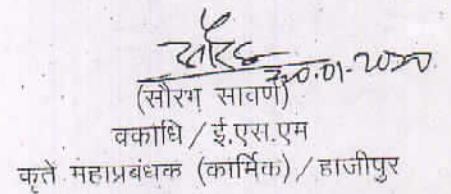 सौरभ
30.01.2020
(सौरभ सावर्ण)
वकाधि / ई.एस.एम
कृते महाप्रबंधक (कार्मिक) / हाजीपुर